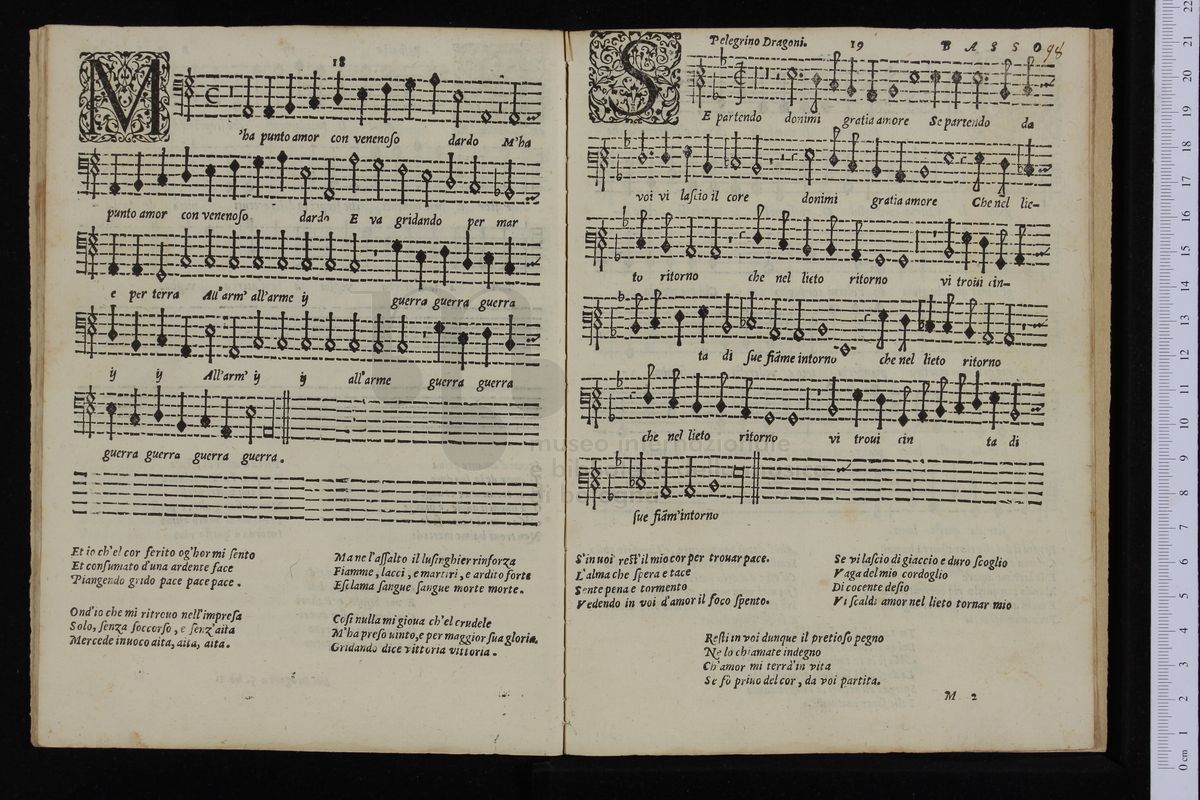 18
M
'ha punto amor con venenoſo dardo M'ha
punto amor con venenoſo dardo E va gridando per mar
e per terra All'arm' all'arme ij guerra guerra guerra
ij ij All'arm' ij ij all'arme guerra guerra
guerra guerra guerra guerra.
Et io ch'el cor ferito og'hor mi ſento
Et conſumato d'una ardente face
Piangendo grido pace pace pace.
Ond'io che mi ritrouo nell'impreſa
Solo, ſenza ſoccorſo, e ſenz'aita
Mercede inuoco aita, aita, aita.
Ma ne l'aſſalto il luſinghier rinforza
Fiamme, lacci, e martiri, e ardito forte
Eſclama ſangue ſangue morte morte.
Coſi nulla mi gioua ch'el crudele
M'ha preſo uinto, e per maggior ſua gloria.
Gridando dice vittoria vittoria.
Pelegrino Dragoni. 19 BASSO 98
S
E partendo donimi gratia amore Se partendo da
voi vi laſcio il core donimi gratia amore Che nel lie-
to ritorno che nel lieto ritorno vi troui cin-
ta di ſue fiãme intorno che nel lieto ritorno
che nel lieto ritorno vi troui cin ta di
ſue fiãm'intorno
S'in uoi reſt'il mio cor per trouar pace.
L'alma che ſpera e tace
Sente pena e tormento
Vedendo in voi d'amor il foco ſpento.
Se vi laſcio di giaccio e duro ſcoglio
Vaga del mio cordoglio
Di cocente deſio
Vi ſcaldi amor nel lieto tornar mio
Reſti in voi dunque il pretioſo pegno
Ne lo chiamate indegno
Ch'amor mi terrà in vita
Se fò priuo del cor, da voi partita.
M 2
museo internazionale
e biblioteca della musica
di bologna